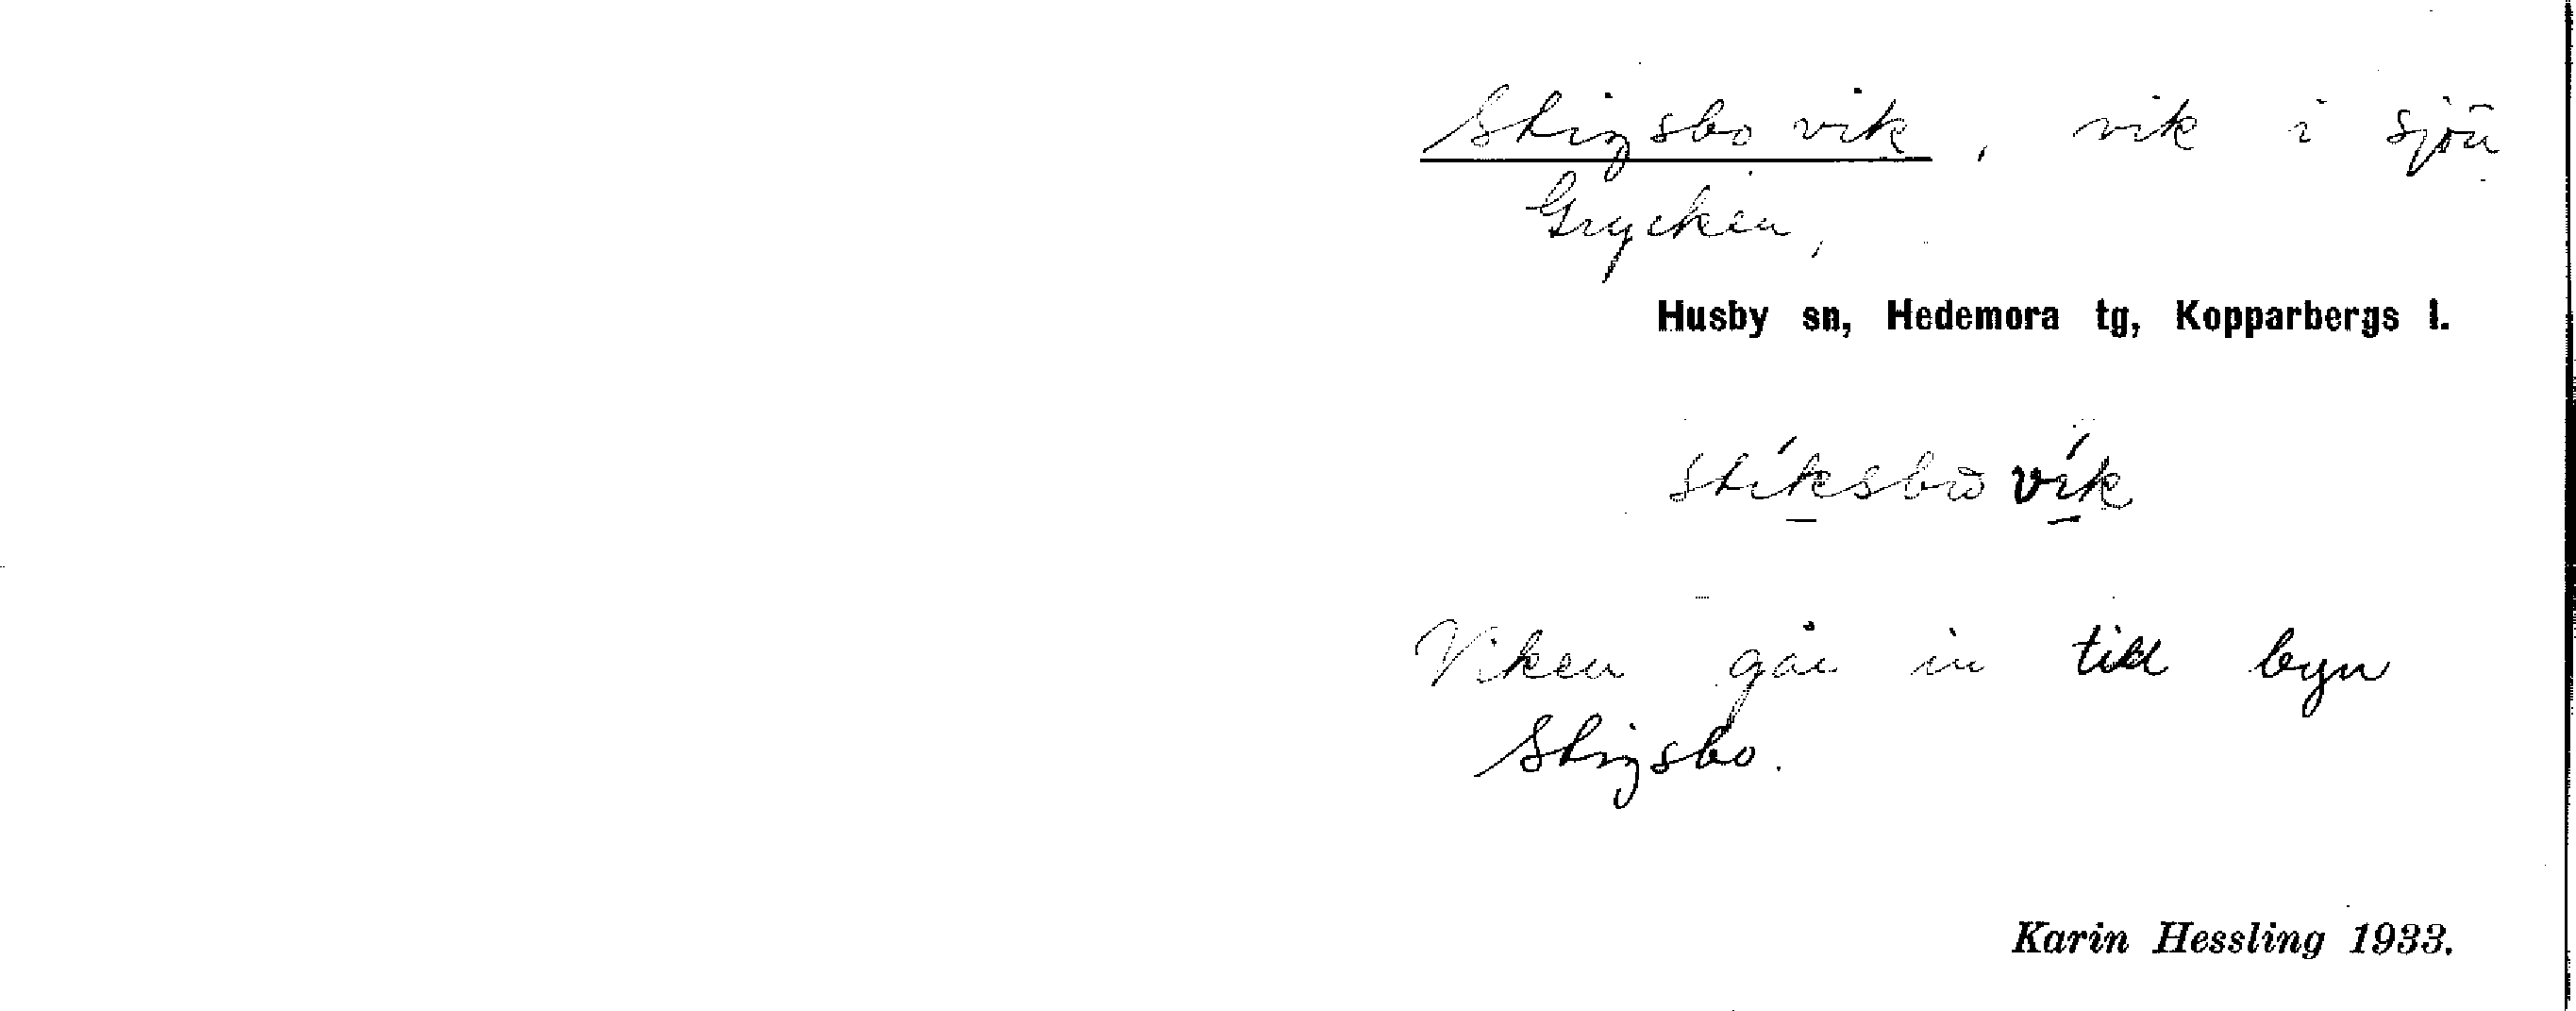 Stigsbo vik, vik i sjön
Grycken,
Husby sn, Hedemora tg, Kopparbergs l.
stíksbω vík
Viken går in till byn
Stigsbo.
Karin Hessling 1933.